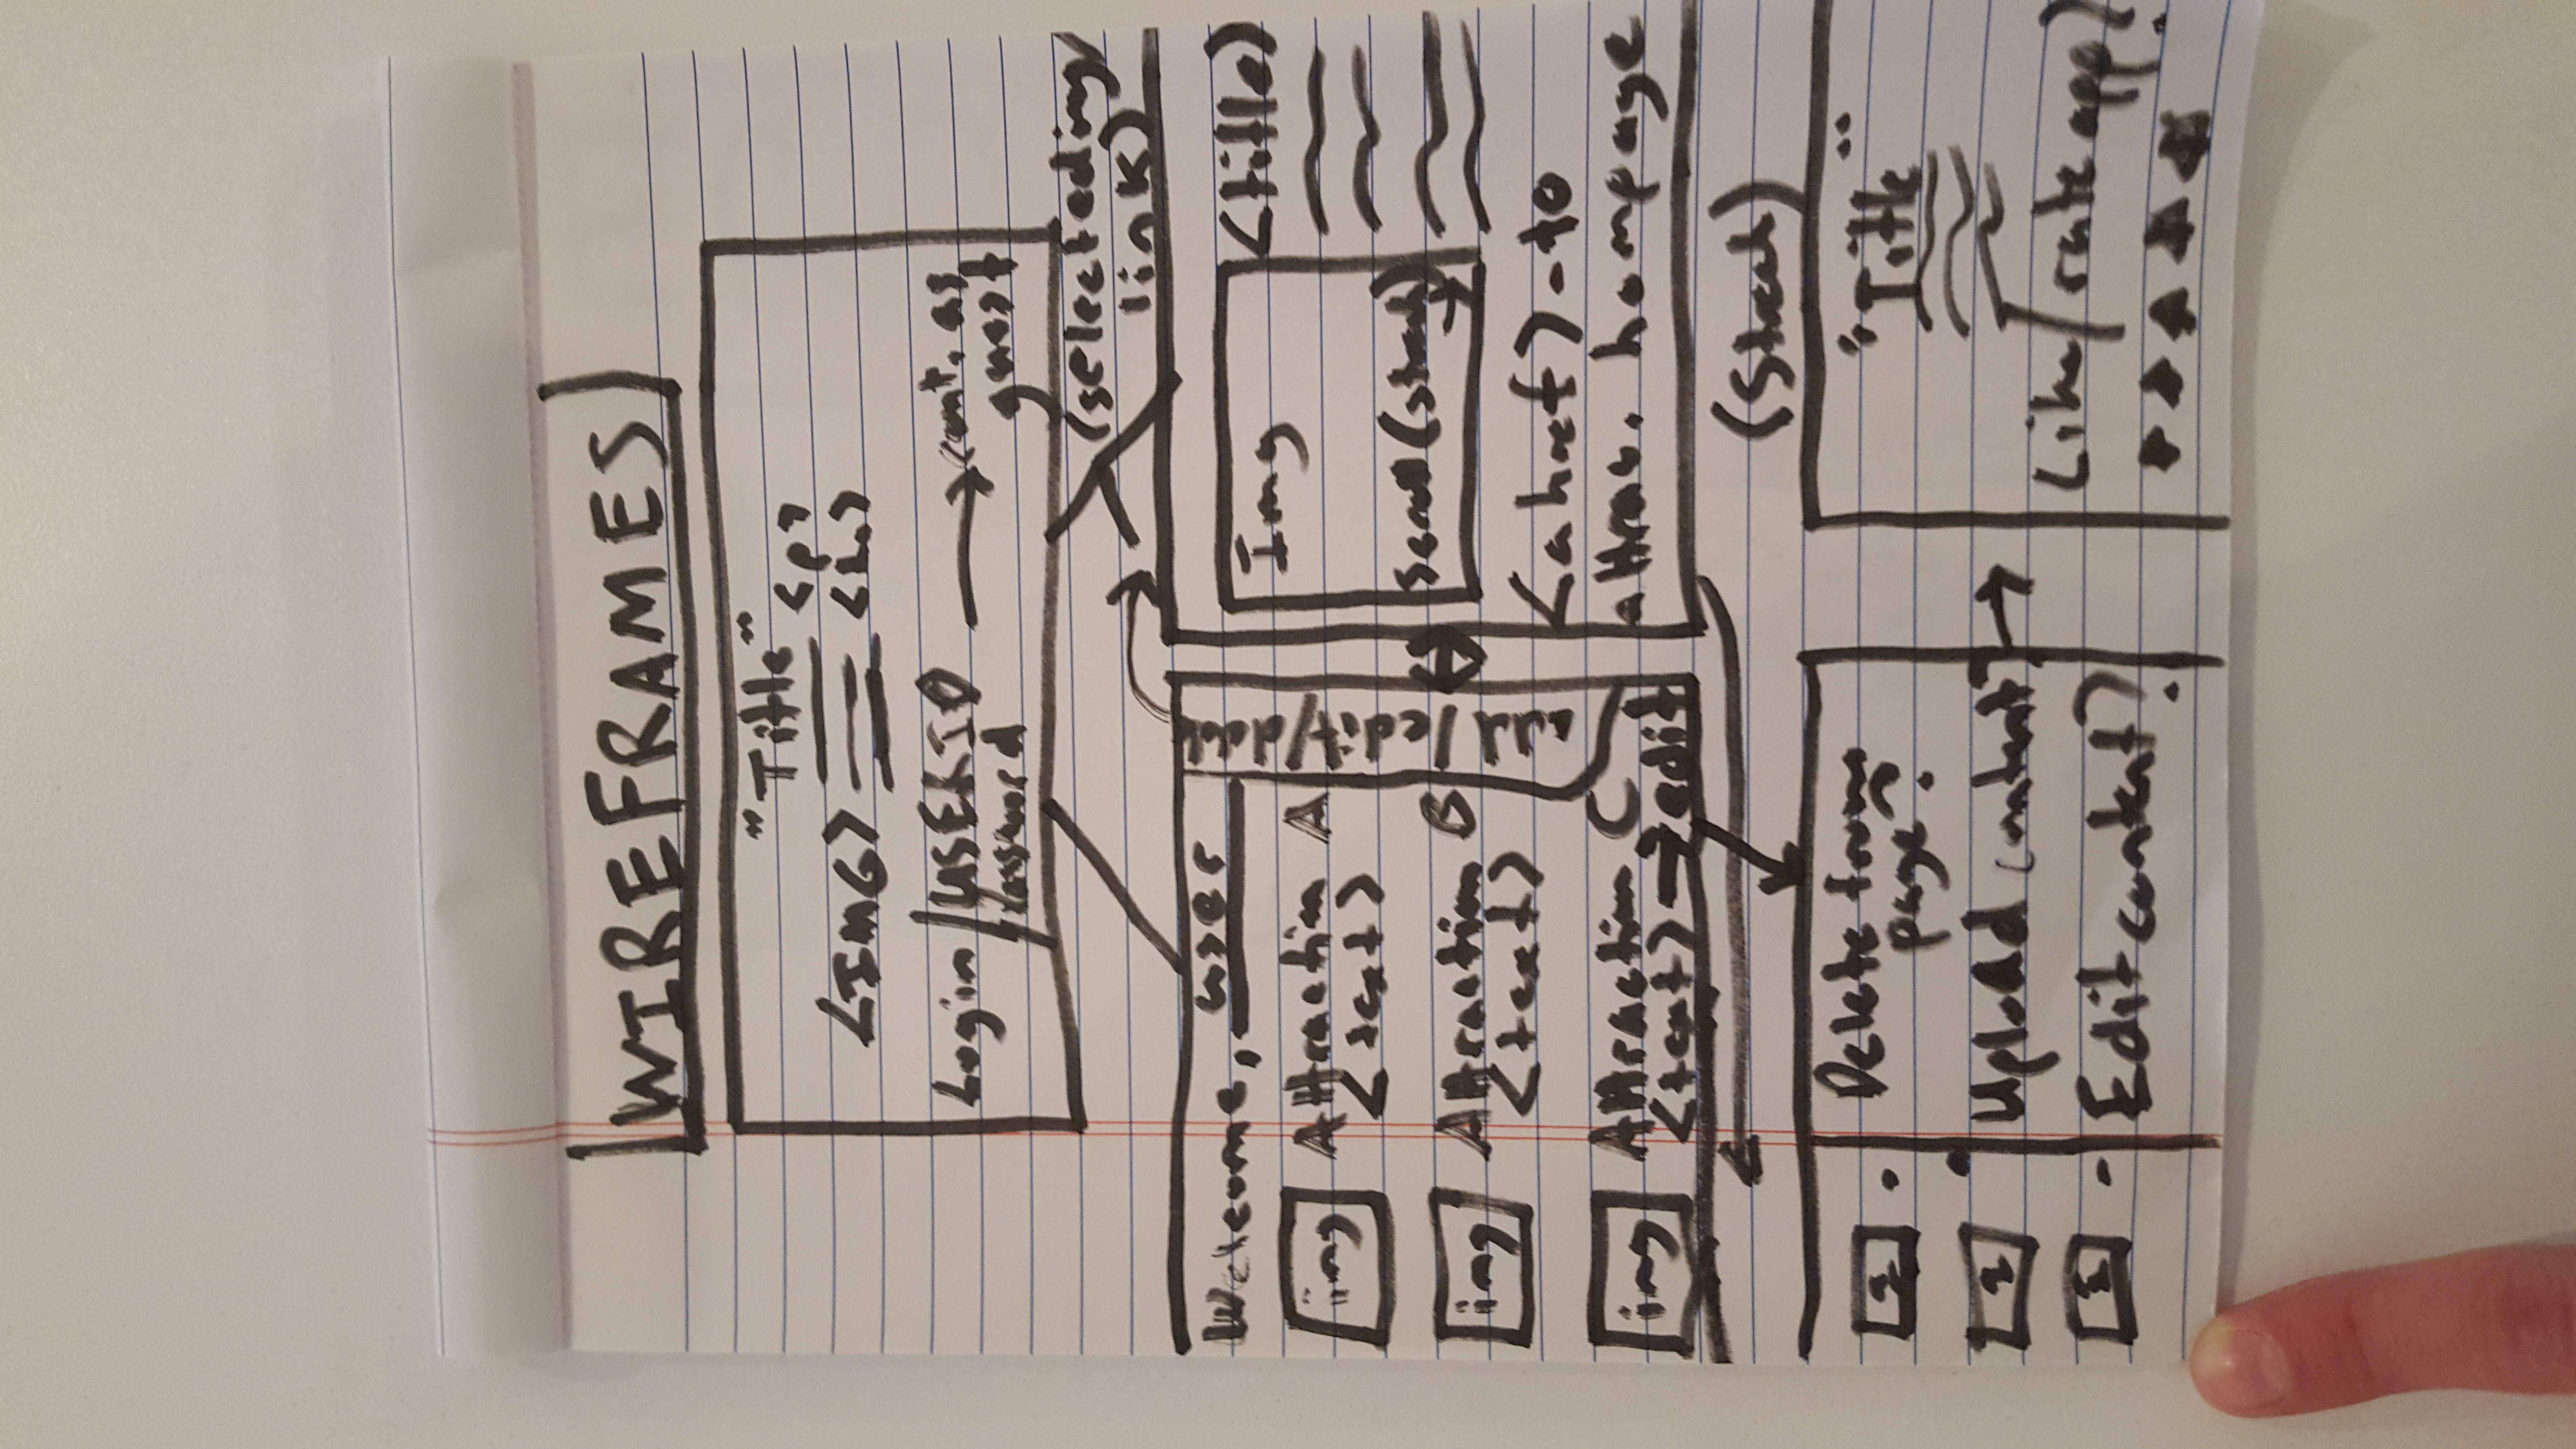 WIREFRAMES
"Title"
<p>
<IMG>
Login / USERID
password
→ cont. as
guest
(selected img/
link)
Welcome, user
add/edit/
img Attraction A
<text>
img Attraction B
<text>
img Attraction C
<text> → edit
Img
Scroll
<title>
<a href> - to
attrac. hompage
Delete from
page?
Upload content?
Edit content?
"Title"
Like/rate app?